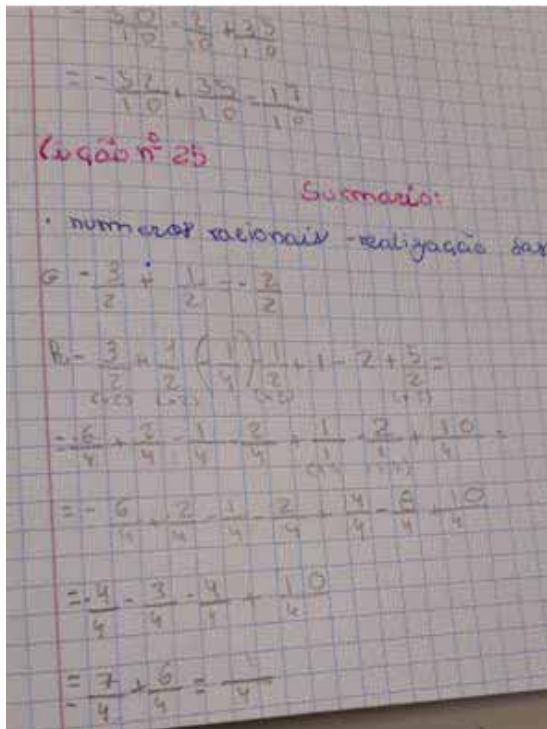 = - 50/10 - 2/10 + 35/10
= - 52/10 + 35/10 = 17/10
Lição nº 25
Sumário:
. numeros racionais - realização das
G - 3/2 + 1/2 = - 2/2
R. - 3/2 + 1/2 (- 1/4) - 1/2 + 1 - 2 + 5/2 =
(×2) (×2) (×2) (×2)
= - 6/4 + 2/4 - 1/4 - 2/4 + 1/1 - 2/1 + 10/4 =
= - 6/4 + 2/4 - 1/4 - 2/4 + 4/4 - 8/4 + 10/4
= - 4/4 - 3/4 - 4/4 + 10/4
= - 7/4 + 6/4 = /4